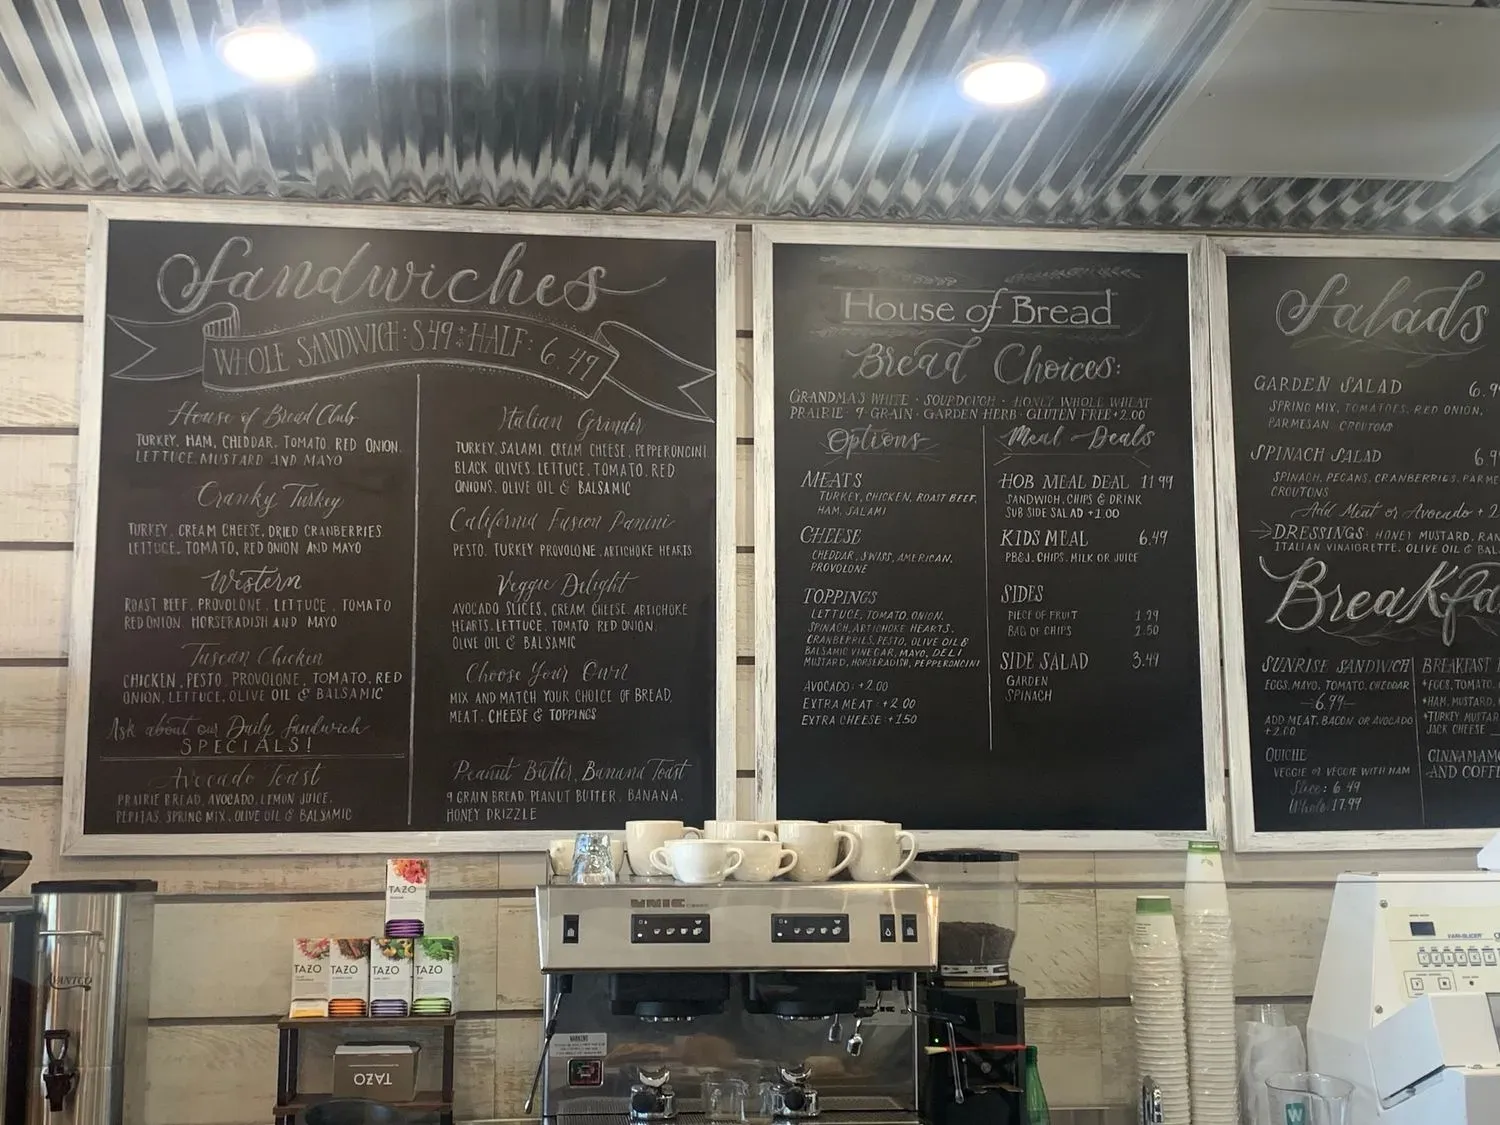 Sandwiches
WHOLE SANDWICH: 8.49 HALF: 6.49
House of Bread Club
TURKEY, HAM, CHEDDAR, TOMATO, RED ONION,
LETTUCE, MUSTARD AND MAYO
Cranky Turkey
TURKEY, CREAM CHEESE, DRIED CRANBERRIES
LETTUCE, TOMATO, RED ONION AND MAYO
Western
ROAST BEEF, PROVOLONE, LETTUCE, TOMATO
RED ONION, HORSERADISH AND MAYO
Tuscan Chicken
CHICKEN, PESTO, PROVOLONE, TOMATO, RED
ONION, LETTUCE, OLIVE OIL & BALSAMIC
Ask about our Daily Sandwich
SPECIALS!
Avocado Toast
PRAIRIE BREAD, AVOCADO, LEMON JUICE,
PEPITAS, SPRING MIX, OLIVE OIL & BALSAMIC
Italian Grinder
TURKEY, SALAMI, CREAM CHEESE, PEPPERONCINI,
BLACK OLIVES, LETTUCE, TOMATO, RED
ONIONS, OLIVE OIL & BALSAMIC
California Fusion Panini
PESTO, TURKEY PROVOLONE, ARTICHOKE HEARTS
Veggie Delight
AVOCADO SLICES, CREAM CHEESE, ARTICHOKE
HEARTS, LETTUCE, TOMATO RED ONION,
OLIVE OIL & BALSAMIC
Choose Your Own
MIX AND MATCH YOUR CHOICE OF BREAD,
MEAT, CHEESE & TOPPINGS
Peanut Butter, Banana Toast
9 GRAIN BREAD, PEANUT BUTTER, BANANA,
HONEY DRIZZLE
House of Bread
Bread Choices:
GRANDMA'S WHITE · SOURDOUGH · HONEY WHOLE WHEAT
PRAIRIE · 9 GRAIN · GARDEN HERB · GLUTEN FREE +2.00
Options
MEATS
TURKEY, CHICKEN, ROAST BEEF,
HAM, SALAMI
CHEESE
CHEDDAR, SWISS, AMERICAN,
PROVOLONE
TOPPINGS
LETTUCE, TOMATO, ONION,
SPINACH, ARTICHOKE HEARTS,
CRANBERRIES, PESTO, OLIVE OIL &
BALSAMIC VINEGAR, MAYO, DELI
MUSTARD, HORSERADISH, PEPPERONCINI
AVOCADO: +2.00
EXTRA MEAT: +2.00
EXTRA CHEESE: +1.50
Meal Deals
HOB MEAL DEAL 11.99
SANDWICH, CHIPS & DRINK
SUB SIDE SALAD +1.00
KIDS MEAL 6.49
PB&J, CHIPS, MILK OR JUICE
SIDES
PIECE OF FRUIT 1.29
BAG OF CHIPS 2.50
SIDE SALAD 3.49
GARDEN
SPINACH
Salads
GARDEN SALAD 6.9
SPRING MIX, TOMATOES, RED ONION,
PARMESAN, CROUTONS
SPINACH SALAD 6.9
SPINACH, PECANS, CRANBERRIES, PARME
CROUTONS
Add Meat or Avocado +2
DRESSINGS: HONEY MUSTARD, RAN
ITALIAN VINAIGRETTE, OLIVE OIL & BAL
Breakfa
SUNRISE SANDWICH
EGGS, MAYO, TOMATO, CHEDDAR
6.99
ADD MEAT, BACON OR AVOCADO
+2.00
QUICHE
VEGGIE OR VEGGIE WITH HAM
Slice: 6.49
Whole: 17.99
BREAKFAST
*EGGS, TOMATO,
*HAM, MUSTARD,
*TURKEY MUSTAR
JACK CHEESE
CINNAMAMO
AND COFFE
TAZO
TAZO
TAZO
TAZO
TAZO
TAZO
AVANTCO
UNIC
WARNING
VARI-SLICER
W